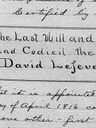 Certified by
The Last Will and
and Codicil the
David Lefever
t it is appointed
y of April 1816 a
one other - first